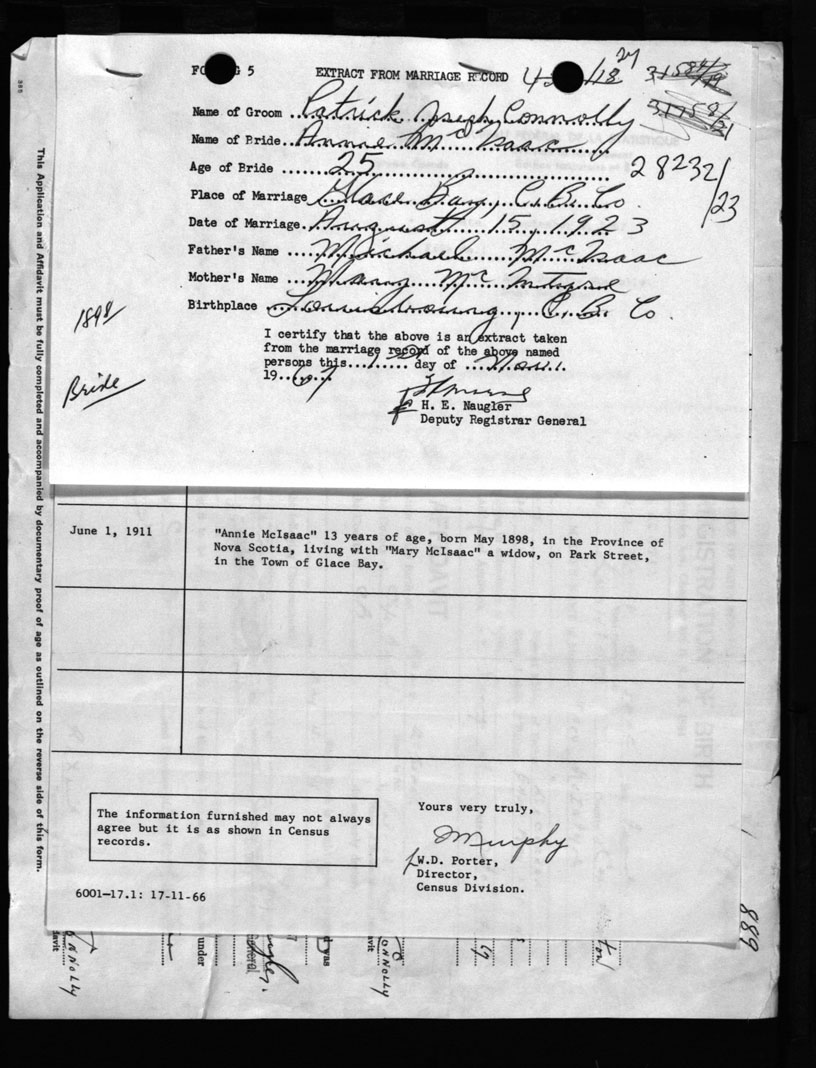 EXTRACT FROM MARRIAGE RECORD
28232/23
Name of Groom Patrick Joseph Connolly
Name of Bride Annie McIsaac
Age of Bride 25
Place of Marriage Glace Bay, C. B. Co.
Date of Marriage August 15, 1923
Father's Name Michael McIsaac
Mother's Name Mary McIntyre
Birthplace Louisbourg, C. B. Co
1898
Bride
I certify that the above is an extract taken
from the marriage record of the above named
persons this day of Nov.
1967
H. E. Naugler
Deputy Registrar General
June 1, 1911
"Annie McIsaac" 13 years of age, born May 1898, in the Province of
Nova Scotia, living with "Mary McIsaac" a widow, on Park Street,
in the Town of Glace Bay.
The information furnished may not always
agree but it is as shown in Census
records.
Yours very truly,
Murphy
W.D. Porter,
Director,
Census Division.
6001-17.1: 17-11-66
889
This Application and Affidavit must be fully completed and accompanied by documentary proof of age as outlined on the reverse side of this form.
under
General
was
CONNOLLY